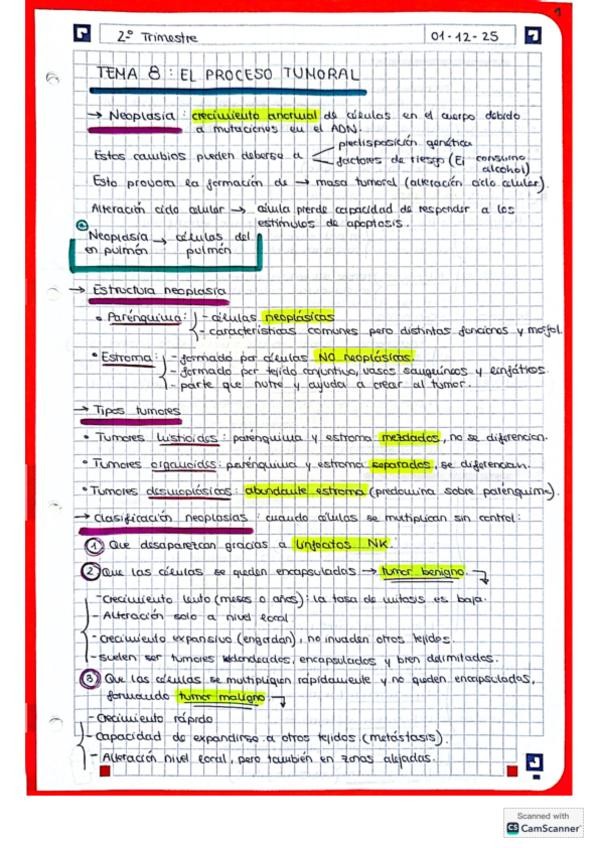 1
2º Trimestre 01-12-25
TEMA 8: EL PROCESO TUMORAL
→ Neoplasia: crecimiento anormal de células en el cuerpo debido
a mutaciones en el ADN.
Estos cambios pueden deberse a predisposición genética
factores de riesgo (Ej consumo
alcohol)
Esto provoca la formación de → masa tumoral (alteración ciclo celular).
Alteración ciclo celular → célula pierde capacidad de responder a los
estímulos de apoptosis.
Neoplasia → células del
en pulmón pulmón
→ Estructura neoplasia
• Parénquima: - células neoplásicas
- características comunes pero distintas funciones y morfol.
• Estroma: - formado por células NO neoplásicas.
- formado por tejido conjuntivo, vasos sanguíneos y linfáticos.
- parte que nutre y ayuda a crear al tumor.
→ Tipos tumores
• Tumores histioides: parénquima y estroma mezclados, no se diferencian.
• Tumores organoides: parénquima y estroma separados, se diferencian.
• Tumores desmoplásicos: abundante estroma (predomina sobre parénquima).
→ Clasificación neoplasias: cuando células se multiplican sin control:
1 Que desaparezcan gracias a linfocitos NK.
2 Que las células se queden encapsuladas → tumor benigno.
- Crecimiento lento (meses o años): la tasa de mitosis es baja.
- Alteración solo a nivel local.
- Crecimiento expansivo (engordan), no invaden otros tejidos.
- Suelen ser tumores redondeados, encapsulados y bien delimitados.
3 Que las células se multipliquen rápidamente y no queden encapsuladas,
formando tumor maligno.
- Crecimiento rápido
- Capacidad de expandirse a otros tejidos (metástasis).
- Alteración nivel local, pero también en zonas alejadas.
Scanned with
CS CamScanner